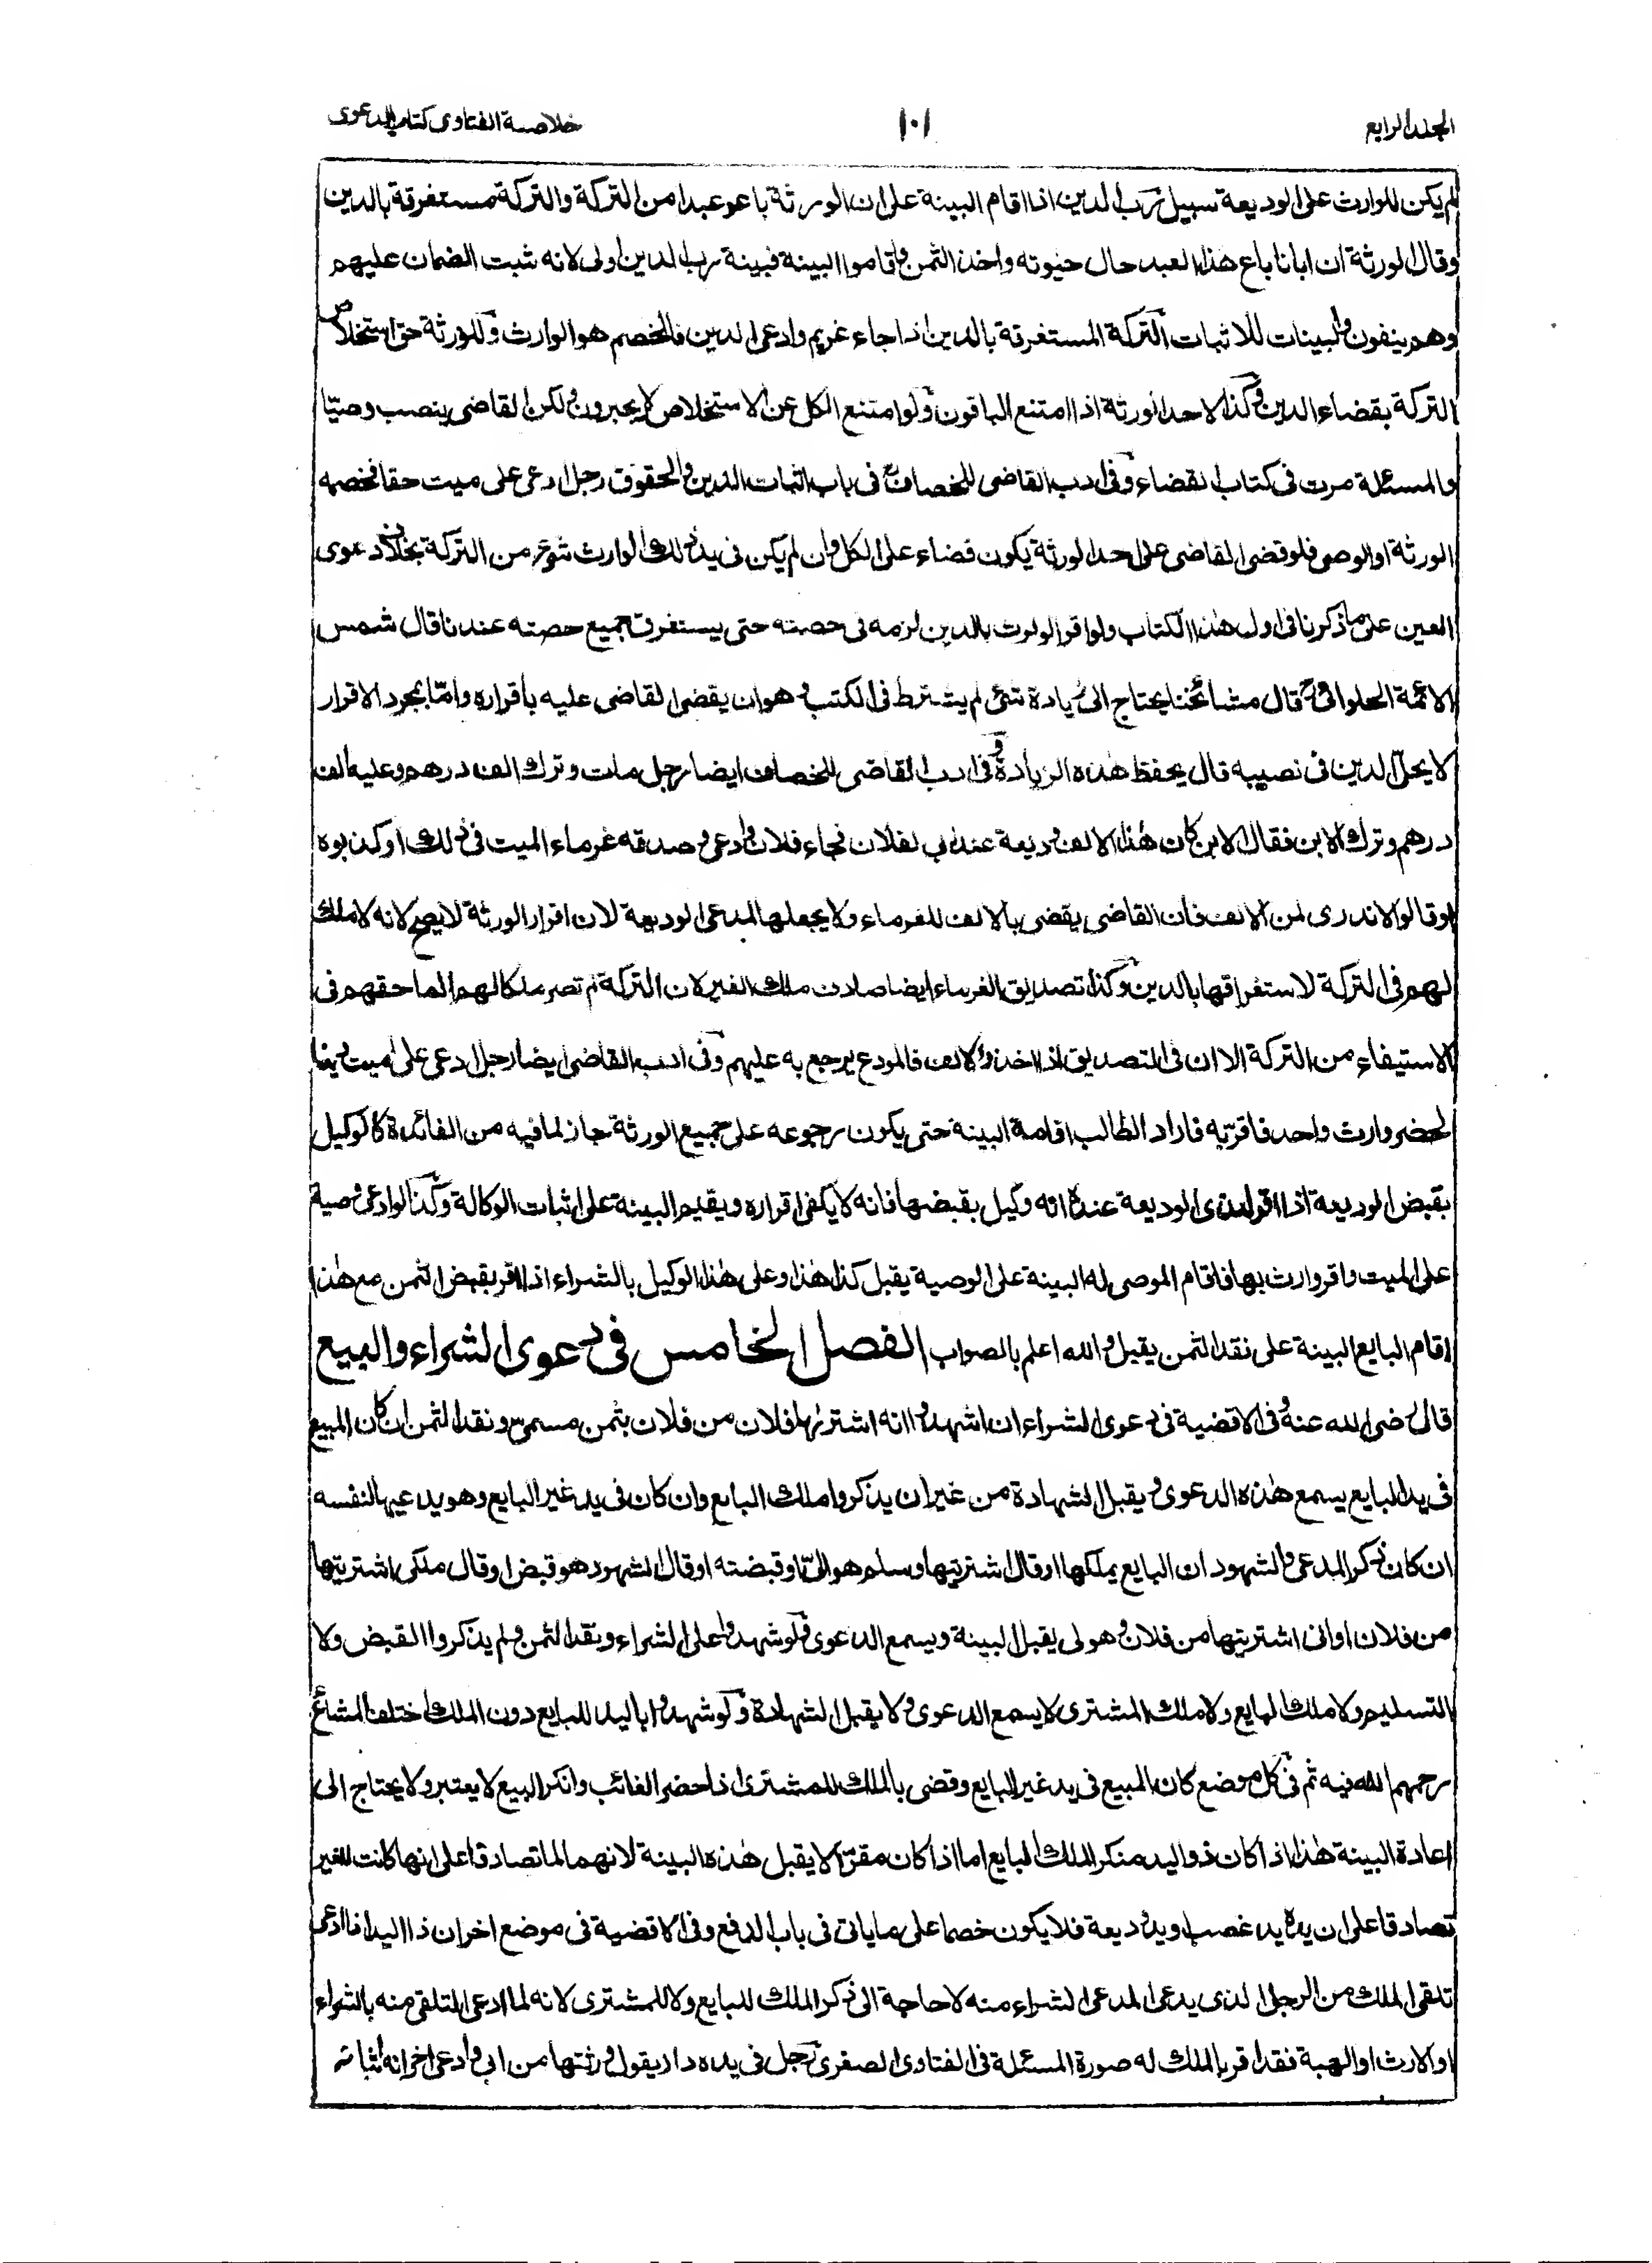 الجلد الرابع
١٠١
خلاصة الفتاوى كتاب الدعوى
لم يكن للوارث على الوديعة سبيل رب الدين اذا اقام البينة على ان الورثة باعو عبدا من التركة والتركة مستغرقة بالدين
وقال الورثة ان ابانا باع هذا العبد حال حيوته واخذ الثمن واقاموا البينة فبينة رب الدين اولى لانه ثبت الضمان عليهم
وهم ينفون والبينات للاثبات التركة المستغرقة بالدين اذا جاء غريم وادعى الدين فالخصم هو الوارث وللورثة حق استخلاص
التركة بقضاء الدين وكذا لاحد الورثة اذا امتنع الباقون ولو امتنع الكل عن الاستخلاص لا يجبرون ولكن القاضى ينصب وصيّا
والمسئلة مرت فى كتاب القضاء وفى ادب القاضى للخصاف فى باب اثبات الدين والحقوق رجل ادعى على ميت حقا فخصمه
الورثة او الوصى فلو قضى القاضى على احد الورثة يكون قضاء على الكل وان لم يكن فى يد ذلك الوارث شئ من التركة بخلاف دعوى
العين على ما ذكرنا فى اول هذا الكتاب ولو اقر الوارث بالدين لزمه فى حصته حتى يستغرق جميع حصته عندنا قال شمس
الائمة الحلوانى قال مشائخنا يحتاج الى زيادة شئ لم يشترط فى الكتب وهو ان يقضى القاضى عليه باقراره وامّا بمجرد الاقرار
لا يحل الدين فى نصيبه قال يحفظ هذه الزيادة وفى ادب القاضى للخصاف ايضا رجل مات وترك الف درهم وعليه الف
درهم وترك الابن فقال الابن كان هذا الالف وديعة عند ابى لفلان فجاء فلان وادعى وصدقه غرماء الميت فى ذلك او كذبوه
او قالوا لا ندرى لمن الالف فان القاضى يقضى بالالف للغرماء ولا يجعلها لمدعى الوديعة لان اقرار الورثة لا يصح لانه لا ملك
لهم فى التركة لاستغراقها بالدين وكذا تصديق الغرماء ايضا صادف ملك الغير لان التركة لم تصر ملكا لهم انما حقهم فى
الاستيفاء من التركة الا ان فى التصديق اذا اخذوا الالف فالمودع يرجع به عليهم وفى ادب القاضى ايضا رجل ادعى على ميت دينا
فحضر وارث واحد فاقرّ به فاراد الطالب اقامة البينة حتى يكون رجوعه على جميع الورثة جاز لما فيه من الفائدة كالوكيل
بقبض الوديعة اذا اقر الذى الوديعة عنده انه وكيل بقبضها فانه لا يكفى اقراره ويقيم البينة على اثبات الوكالة وكذا لو ادعى وصية
على الميت واقر وارث بها فاقام الموصى له البينة على الوصية يقبل كذا هذا وعلى هذا الوكيل بالشراء اذا اقر بقبض الثمن مع هذا
اقام البايع البينة على نقد الثمن يقبل والله اعلم بالصواب الفصل الخامس فى دعوى الشراء والبيع
قال رضى الله عنه وفى الاقضية فى دعوى الشراء ان اشهدوا انه اشتراها فلان من فلان بثمن مسمى ونقد الثمن ان كان المبيع
فى يد البايع يسمع هذه الدعوى ويقبل الشهادة من غير ان يذكروا ملك البايع وان كان فى يد غير البايع وهو يدعيها لنفسه
ان كان ذكر المدعى والشهود ان البايع يملكها او قال اشتريتها وسلم هو الىّ او قبضته او قال الشهود هو قبض او قال ملكى اشتريتها
من فلان او انى اشتريتها من فلان وهو لى يقبل البينة ويسمع الدعوى فلو شهدوا على الشراء ونقد الثمن ولم يذكروا القبض ولا
التسليم ولا ملك البايع ولا ملك المشترى لا يسمع الدعوى ولا يقبل الشهادة ولو شهدوا باليد للبايع دون الملك اختلف المشائخ
رحمهم الله فيه ثم فى كل موضع كان المبيع فى يد غير البايع وقضى بالملك للمشترى اذا حضر الغائب وانكر البيع لا يعتبر ولا يحتاج الى
اعادة البينة هذا اذا كان ذو اليد منكر الملك البايع اما اذا كان مقرّا لا يقبل هذه البينة لانهما لما تصادقا على انها كانت للغير
تصادقا على ان يده يد غصب او يد وديعة فلا يكون خصما على ما ياتى فى باب الدفع وفى الاقضية فى موضع اخر ان ذا اليد اذا ادعى
تلقى الملك من الرجل الذى يدعى المدعى الشراء منه لا حاجة الى ذكر الملك للبايع ولا للمشترى لانه لما ادعى التلقى منه بالشراء
او الارث او الهبة فقد اقر بالملك له صورة المسئلة فى الفتاوى الصغرى رجل فى يده دار يقول ورثتها من ابى وادعى اخر انه